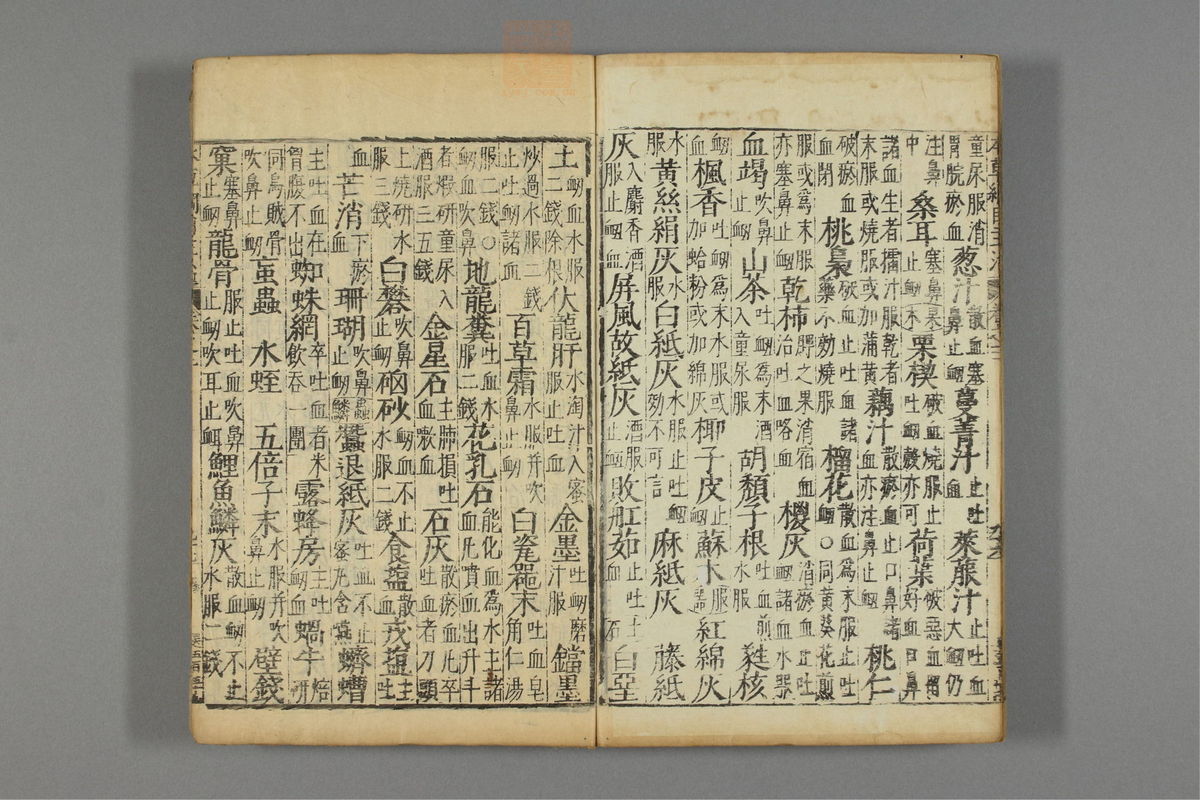 童尿服消胃脘瘀血葱汁散血塞鼻止衄蔓菁汁止吐血萊菔汁止吐血大衄仍
注鼻中桑耳塞鼻止衄栗楔破血燒服止吐衄殼亦可荷葉破惡血留好血口鼻
諸血生者擂汁服乾者末服或燒服或加蒲黄藕汁散瘀血止口鼻諸血亦注鼻止衄桃仁
破瘀血血閉桃梟破血止吐血諸藥不効燒服榴花散血爲末服止吐衄○同黄葵花煎
服或爲末服亦塞鼻止衄乾柿治吐血咯血椶灰消瘀血止吐衄諸血水服
血竭吹鼻止衄山茶吐衄爲末酒入童尿服胡頹子根吐血煎水服蕤核
衄楓香吐衄爲末水服或加蛤粉或加綿灰椰子皮止衄蘇木紅綿灰
水服黄絲絹灰水服白紙灰水服止吐衄効不可言麻紙灰藤紙
灰入麝香酒服止衄血屏風故紙灰酒服止衄敗舡茹止吐血石白堊
土衄血水服二錢除根伏龍肝水淘汁入蜜服止吐血金墨吐衄磨汁服鐺墨
炒過水服二錢止吐諸血百草霜水服并吹鼻止衄白瓷器末吐血皂角仁湯
服二錢○衄血吹鼻地龍糞吐血水服二錢花乳石能化血爲水主諸血凡噴血出升斗
者煆研童尿入酒服三五錢金星石主肺損吐血嗽血石灰散瘀血凡卒吐血者刀頭
上燒研水服三錢白礬吹鼻止衄硇砂衄血不止水服二錢食鹽散血戎鹽主吐
血芒消下瘀血珊瑚吹鼻止衄蟲鱗蠶退紙灰吐血不止蜜丸含嚥蠐螬
主吐血在胷腹不出蜘蛛網卒吐血者米飲吞一團露蜂房主吐衄血蝸牛焙研
同烏賊骨吹鼻止衄䖟蟲水蛭五倍子末水服并吹鼻止衄壁錢
窠塞鼻止衄龍骨服止吐血吹鼻止衄吹耳止衈鯉魚鱗灰散血衄不止水服二錢